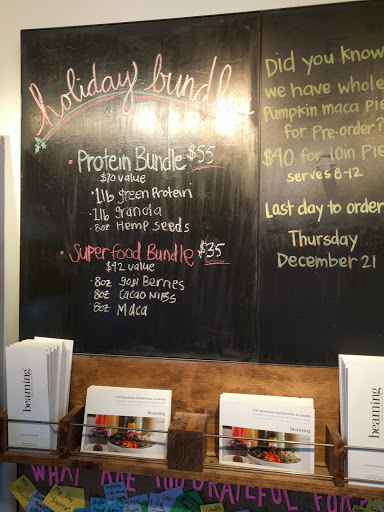 holiday bundles
• Protein Bundle $55
$70 value
• 1lb green Protein
• 1lb granola
• 8oz Hemp seeds
• Superfood Bundle $35
$42 value
• 8oz goji Berries
• 8oz Cacao NIBS
• 8oz Maca
Did you know
we have whole
Pumpkin maca Pie
for Pre-order?
$40 for 10in Pie
serves 8-12
Last day to order
Thursday
December 21
beaming
THE BEAMING SUPERFOOD CLEANSE
beaming
THE BEAMING SUPERFOOD CLEANSE
beaming
beaming
WHAT ARE YOU GRATEFUL FOR?